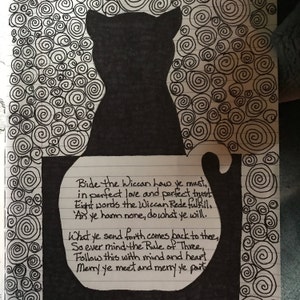 Bide the Wiccan Law ye must,
in perfect love and perfect trust.
Eight words the Wiccan Rede fulfill,
An' ye harm none, do what ye will.
What ye send forth comes back to thee,
So ever mind the Rule of Three,
Follow this with mind and heart
Merry ye meet and merry ye part.